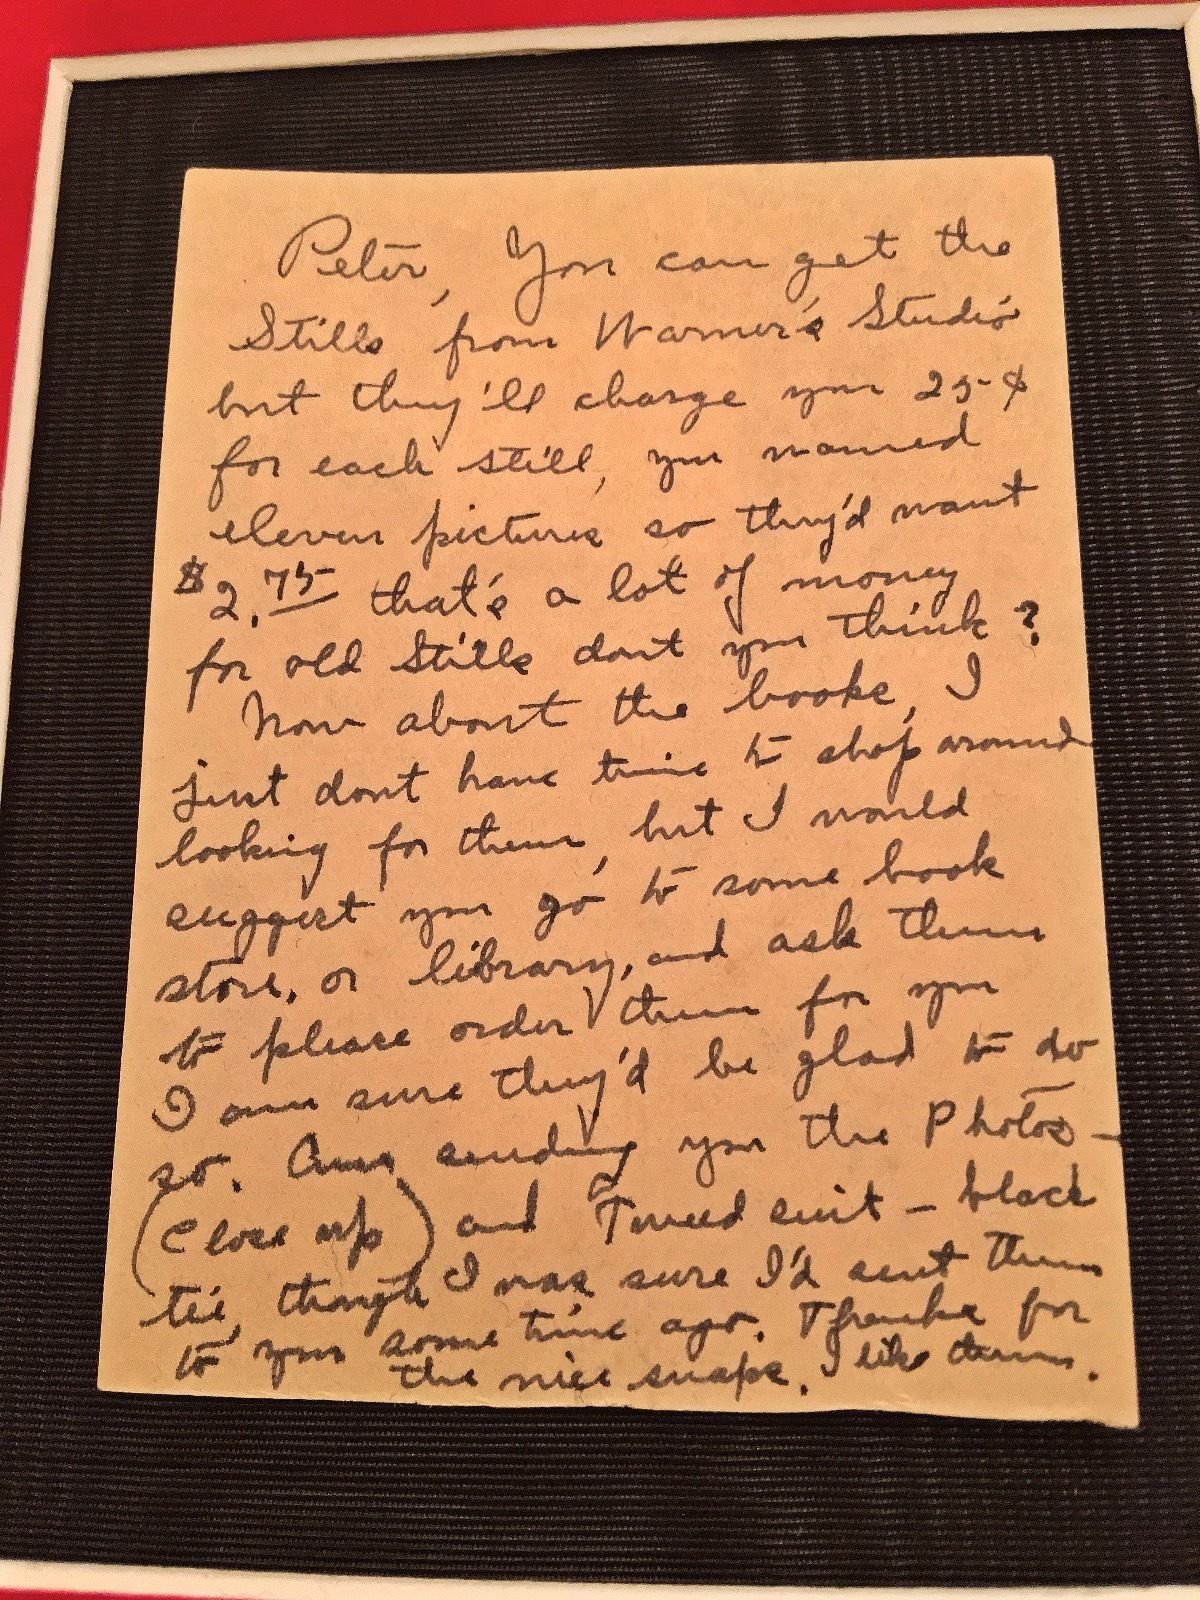 Peter, You can get the
Stills from Warner's Studio
but they'll charge you 25¢
for each still, you named
eleven pictures so they'd want
$2.75 that's a lot of money
for old Stills dont you think?
Now about the books, I
just dont have time to shop around
looking for them, but I would
suggest you go to some book
store, or library, and ask them
to please order them for you
I am sure they'd be glad to do
so. Am sending you the Photos -
(Close up) and Tweed suit - black
tie, though I was sure I'd sent them
to you some time ago. Thanks for
the nice snaps. I like them.